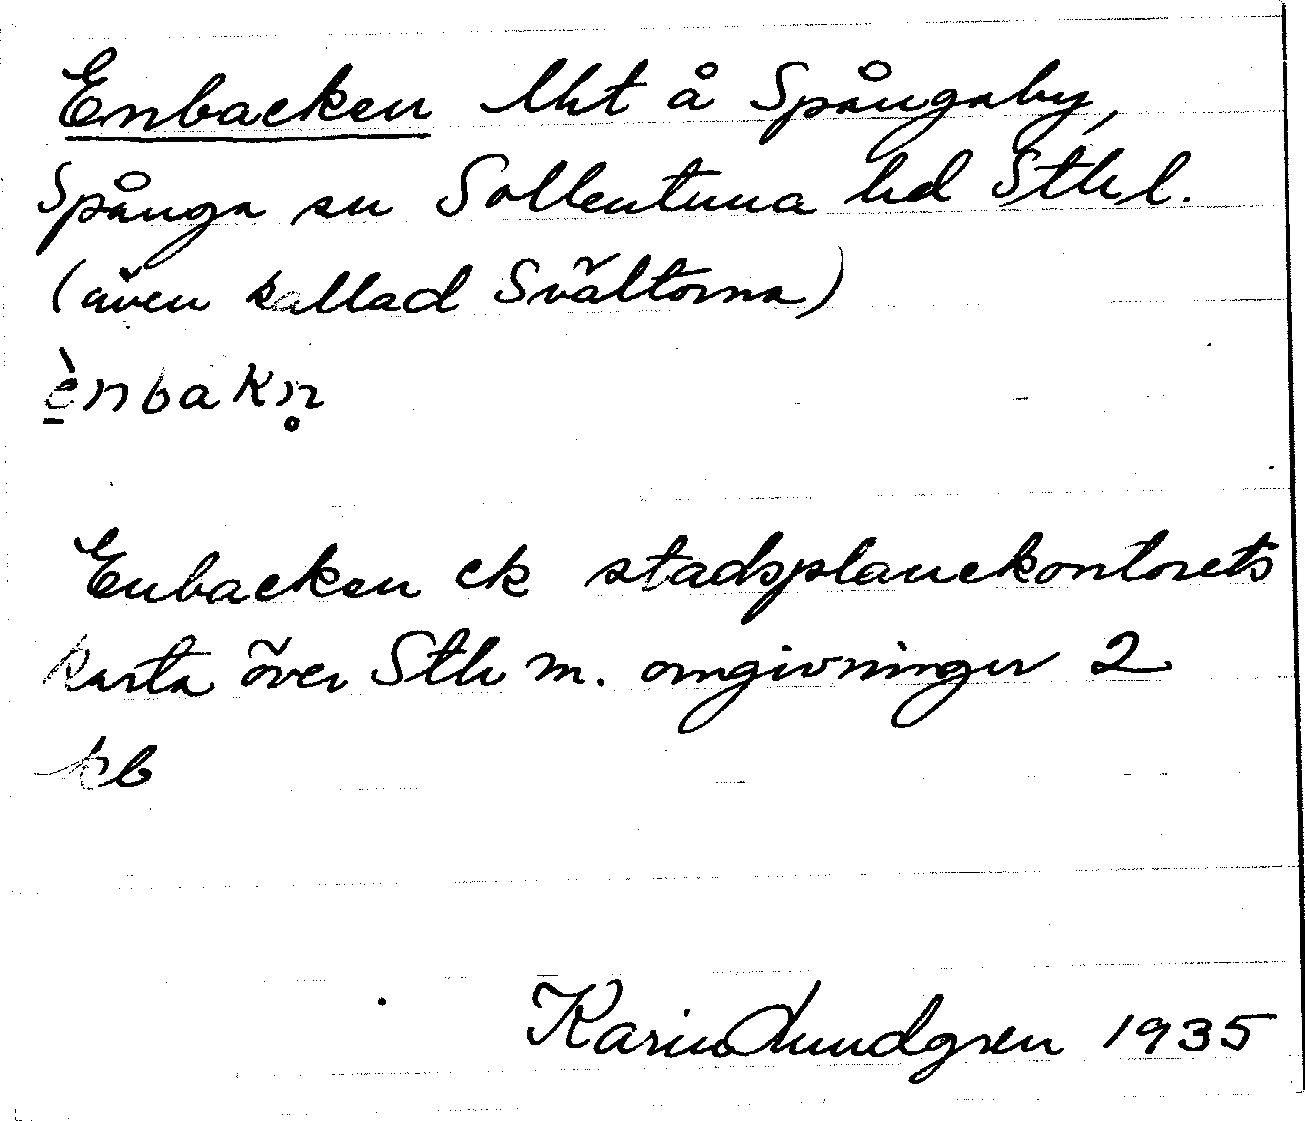 Enbacken lht å Spångaby,
Spånga sn Sollentuna hd Sthl.
(även kallad Svältorna)
è̠nbakn̥
Enbacken ek stadsplanekontorets
karta över Sth m. omgivningar 2
kb
Karin Lundgren 1935